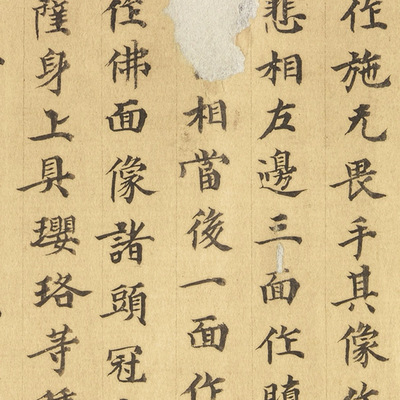 作施无畏手其像作
悲相左邊三面作
相當後一面作
作佛面像諸頭冠
薩身上具瓔珞等